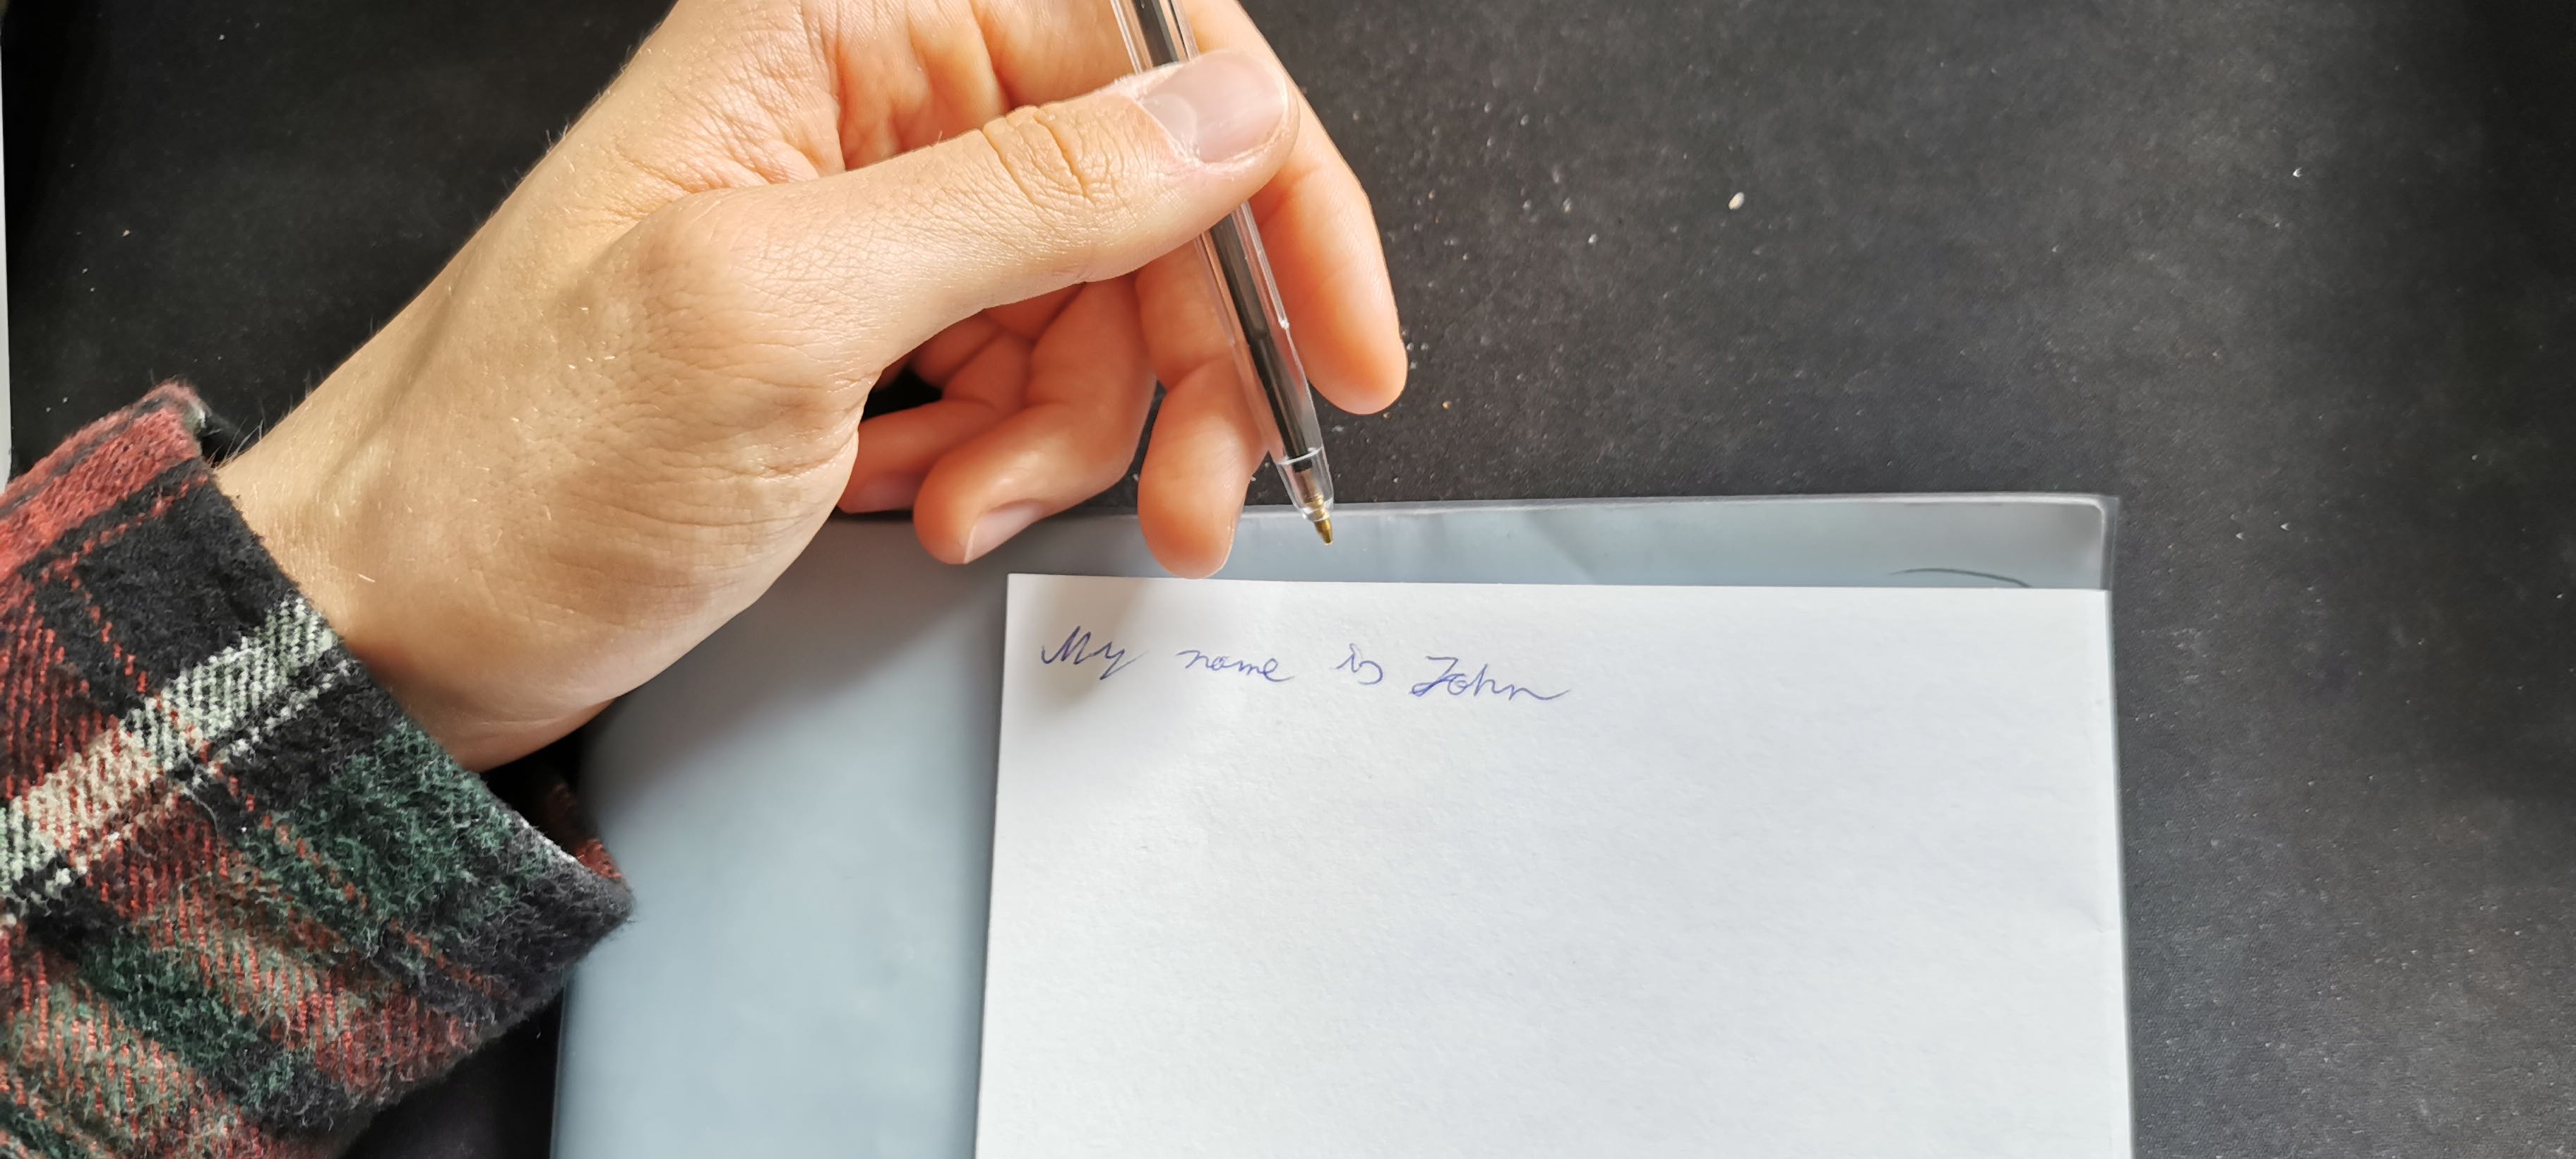 My name is John